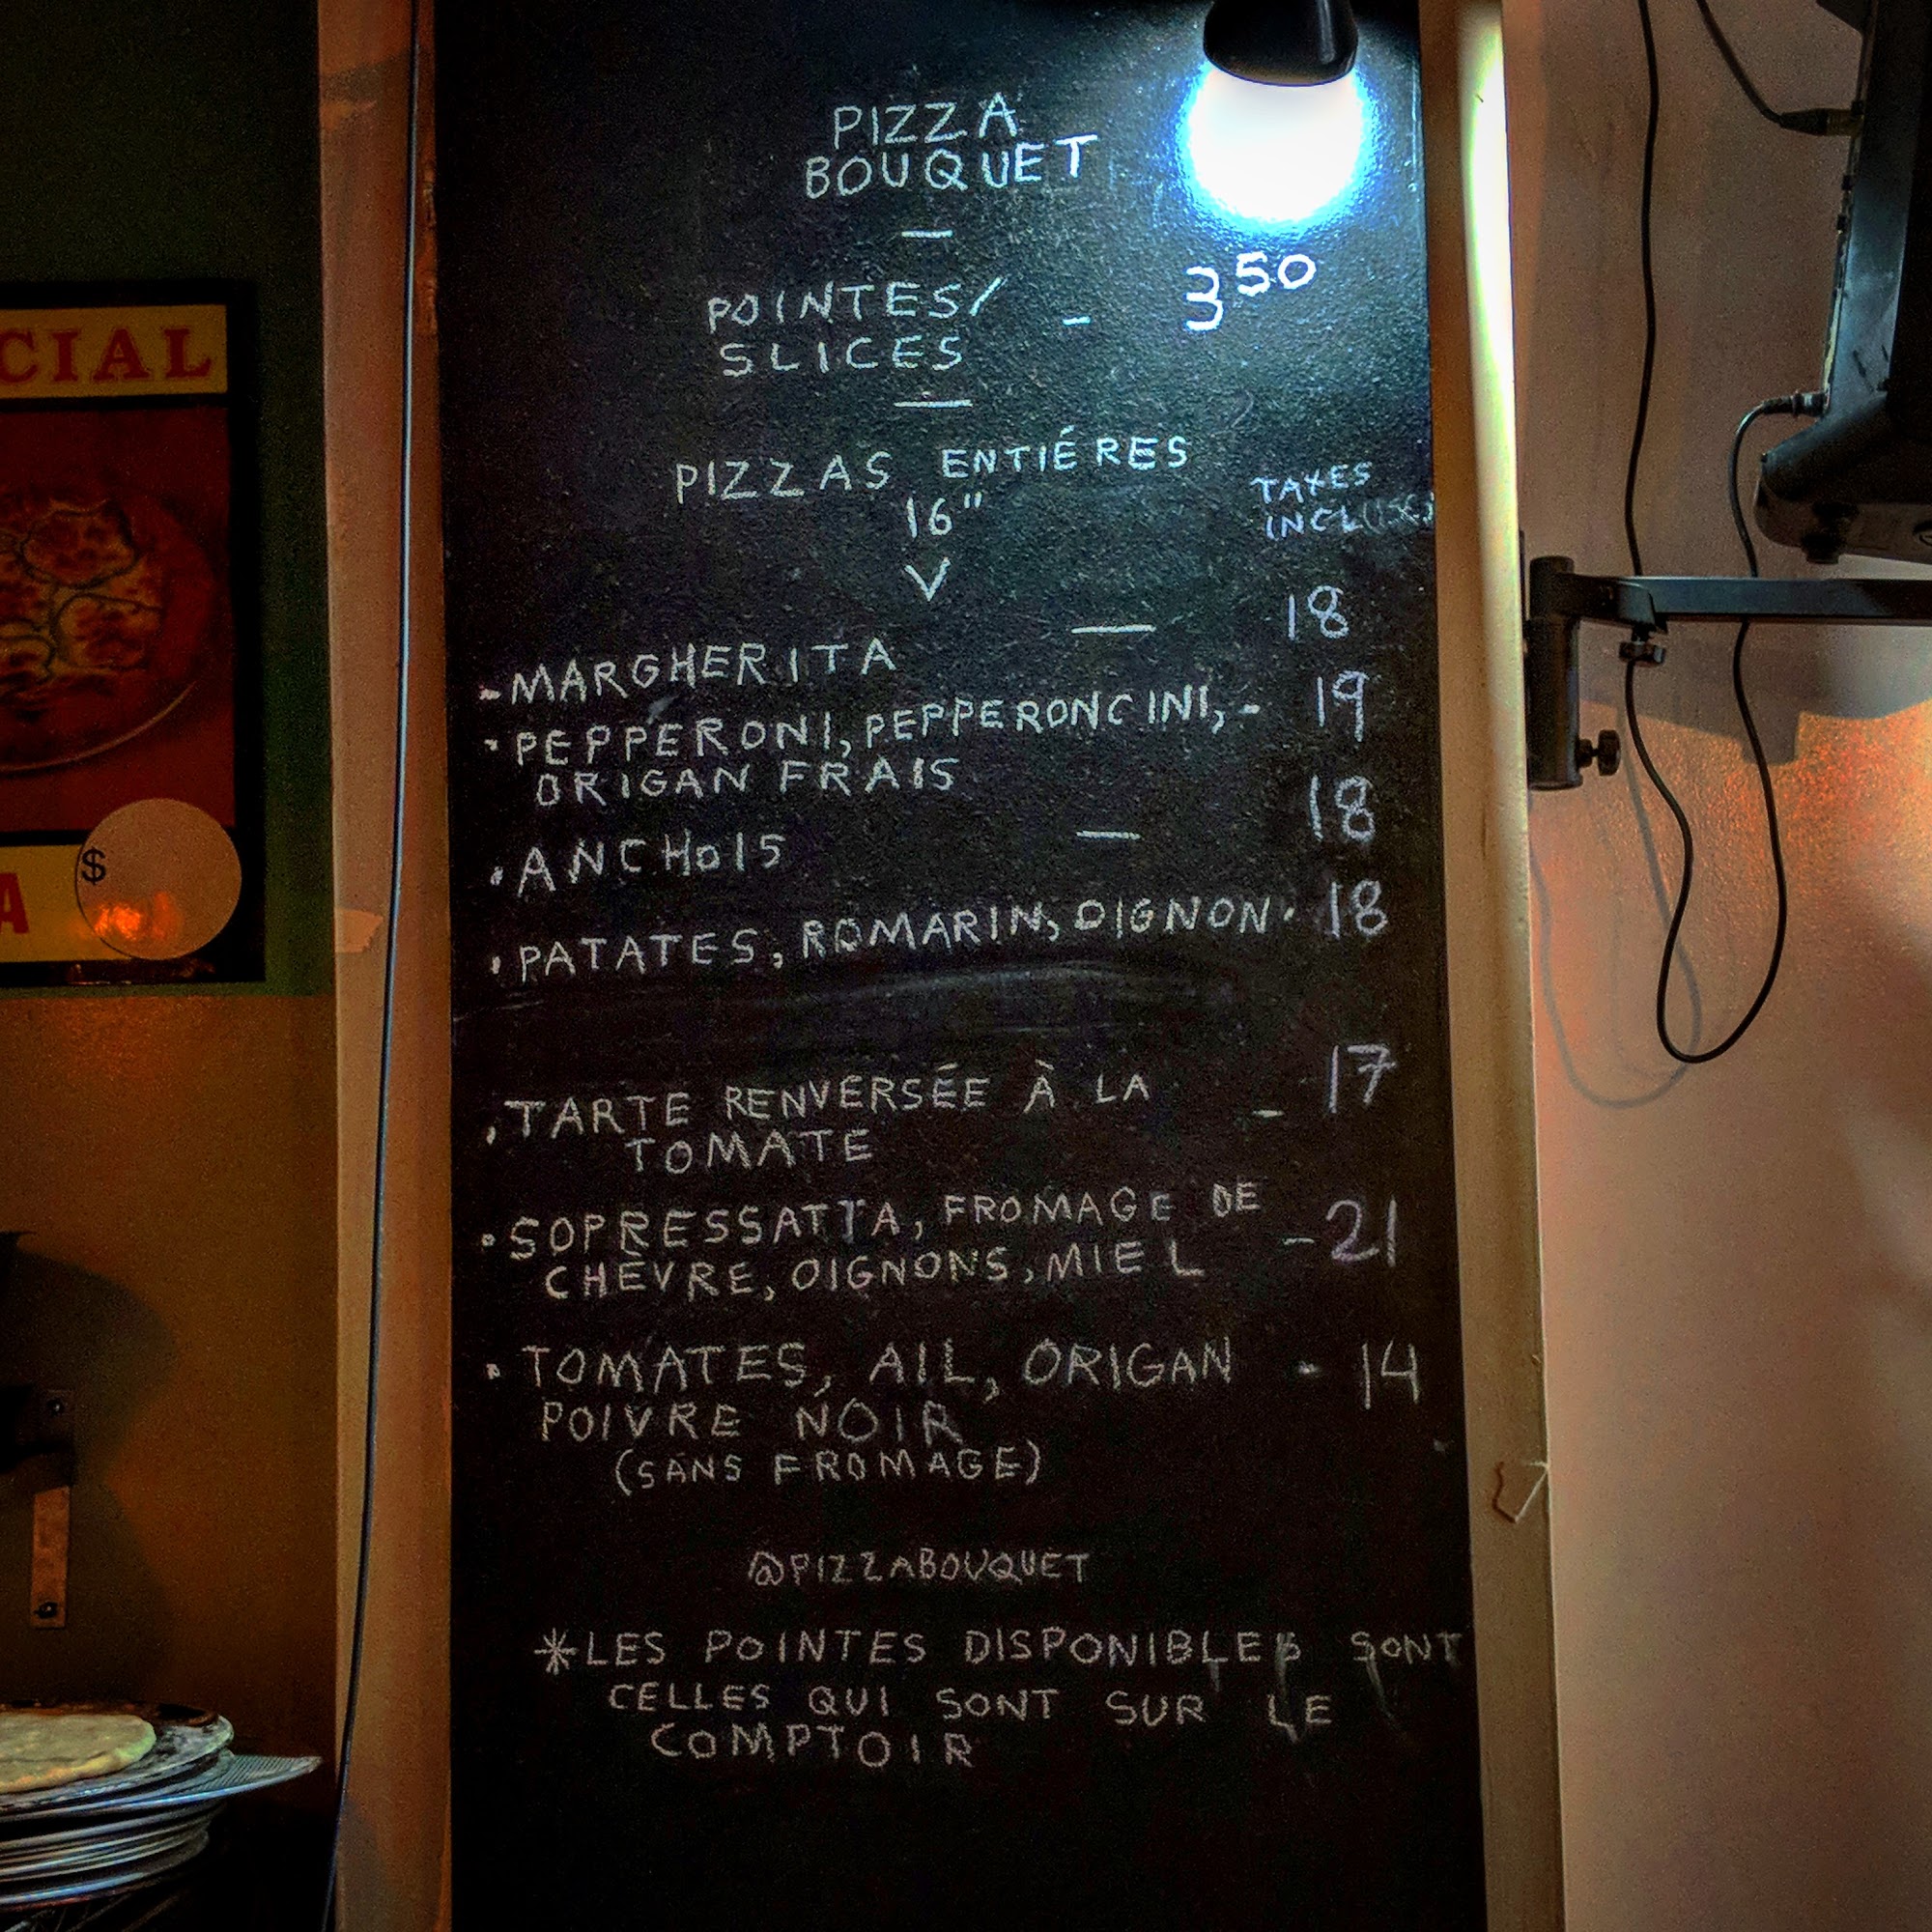 CIAL
$
A
PIZZA
BOUQUET
—
POINTES/ - 3 50
SLICES
—
PIZZAS ENTIÉRES
16"
TAXES
V
MARGHERITA — 18
· PEPPERONI, PEPPERONCINI, - 19
ORIGAN FRAIS
· ANCHOIS — 18
· PATATES, ROMARIN, OIGNON · 18
· TARTE RENVERSÉE À LA - 17
TOMATE
· SOPRESSATTA, FROMAGE DE - 21
CHEVRE, OIGNONS, MIEL
· TOMATES, AIL, ORIGAN - 14
POIVRE NOIR
(SANS FROMAGE)
@PIZZABOUQUET
*LES POINTES DISPONIBLES SONT
CELLES QUI SONT SUR LE
COMPTOIR